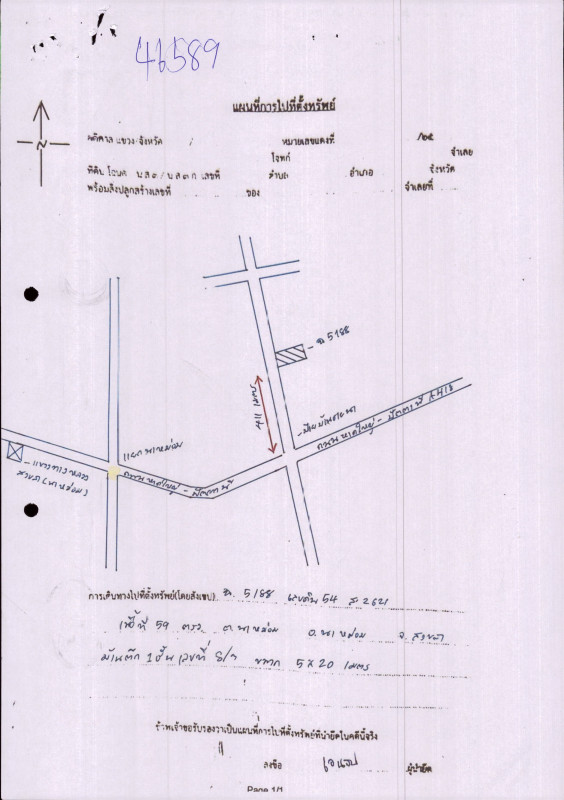 46589
แผนที่การไปที่ตั้งทรัพย์
N
คดีศาล แขวง/จังหวัด หมายเลขแดงที่ /๒๕
โจทก์ จำเลย
ที่ดิน โฉนด น.ส.๓ / น.ส.๓ ก เลขที่ ตำบล อำเภอ จังหวัด
พร้อมสิ่งปลูกสร้างเลขที่ ของ จำเลยที่
ฉ. 5188
แยกนาหม่อม
แขวงทางหลวง
สงขลา (นาหม่อม)
ถนนหาดใหญ่ - ปัตตานี
ถนนหาดใหญ่ - ปัตตานี
การเดินทางไปที่ตั้งทรัพย์(โดยสังเขป) ฉ. 5188 เลขดิน 54
เนื้อที่ 59 ตรว. ต. นาหม่อม อ. นาหม่อม จ. สงขลา
บ้านตึก 1 ชั้น เลขที่ ขนาด 5 x 20 เมตร
ข้าพเจ้าขอรับรองว่าเป็นแผนที่การไปที่ตั้งทรัพย์ที่นำยึดในคดีนี้จริง
ลงชื่อ ผู้นำยึด
Page 1/1